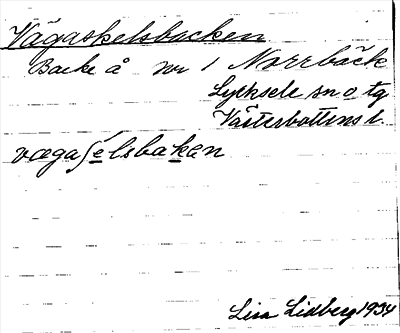 Vägaskelsbacken
Backe å nr 1 Norrbäck
Lycksele sn o tg
Västerbottens l.
vægaſelsbaken
Lisa Lidberg 1934